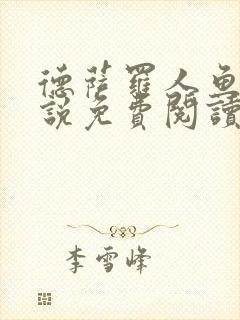 德薩羅人魚
說免費閱讀
李雪峰